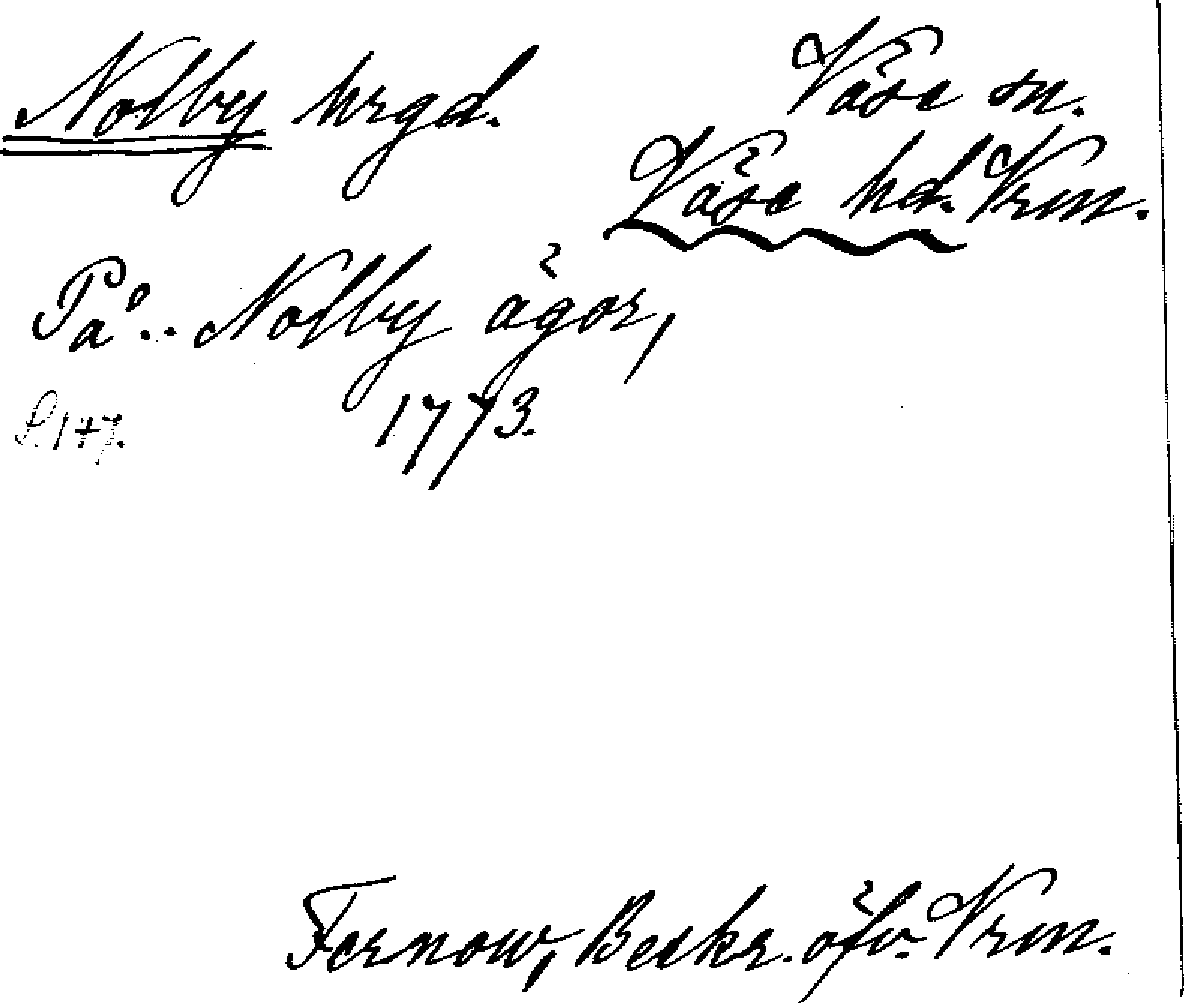 Nolby hrgd.
Väse sn.
Väse hd. Vrm.
På .. Nolby ägor,
S. 147. 1773.
Fernow, Beskr. öfv. Vrm.